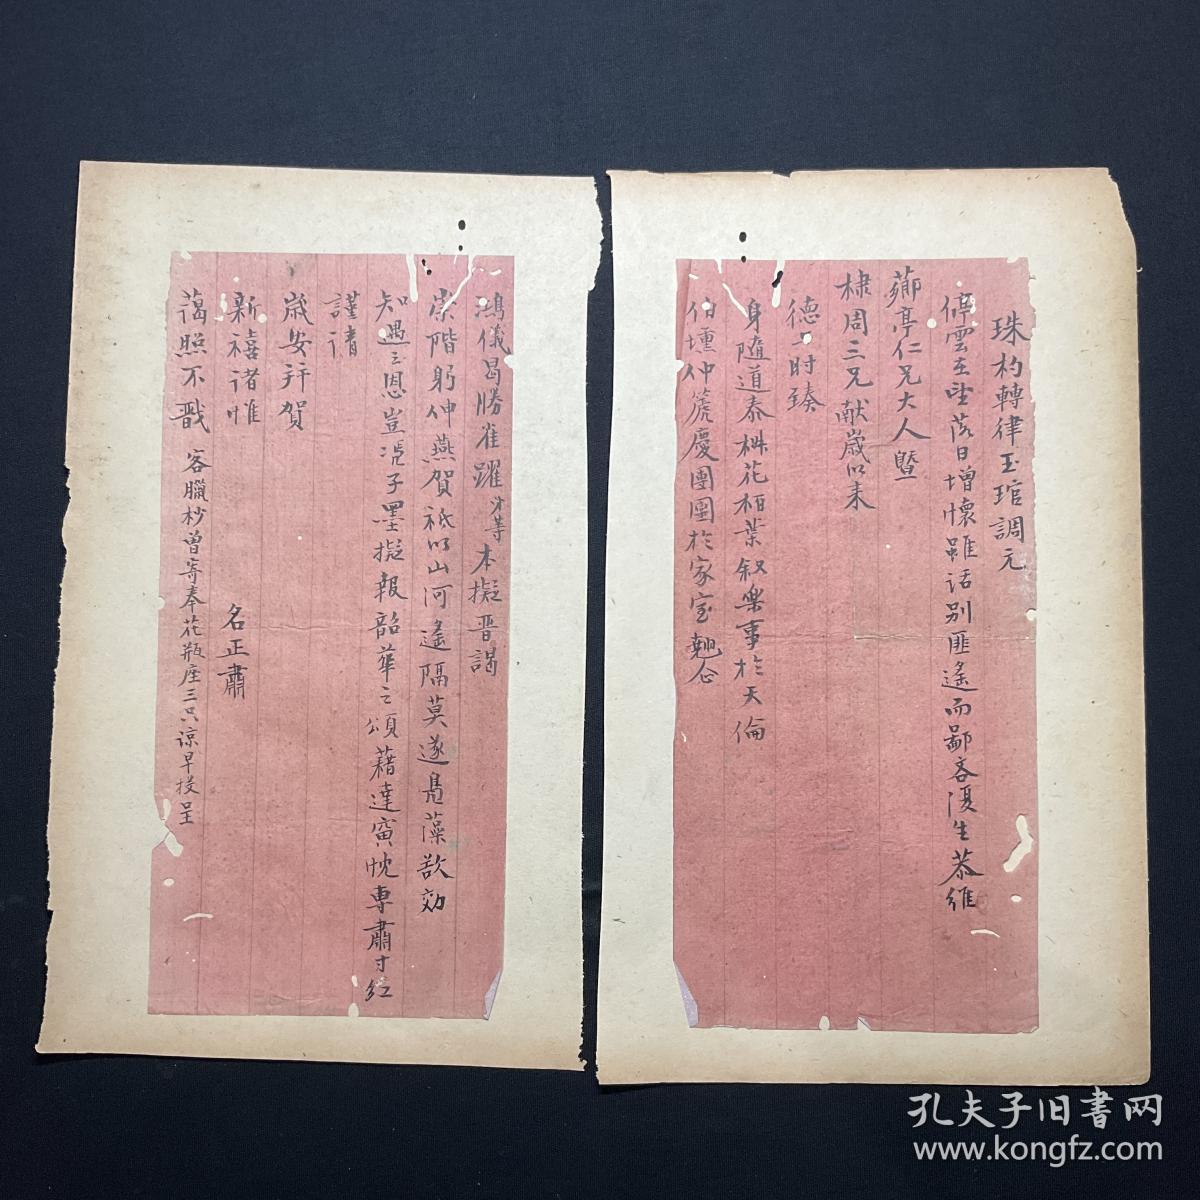 珠杓轉律玉琯調元
停雲在望落日增懷雖話別匪遙而鄙吝復生恭維
薌亭仁兄大人暨
棣周三兄獻歲以來
德一時臻
身隨道泰椒花柏葉敘樂事於天倫
伯壎仲篪慶團圞於家室翹企
鴻儀曷勝雀躍弟等本擬晉謁
崇階躬伸燕賀祗以山河遙隔莫遂鳧藻欲效
知遇之恩豈凴子墨擬報韶華之頌藉達寅忱專肅寸紅
謹請
歲安並賀
新禧諸惟
藹照不戩
名正肅
客臘杪曾寄奉花瓶座三只諒早投呈
孔夫子旧書网
www.kongfz.com